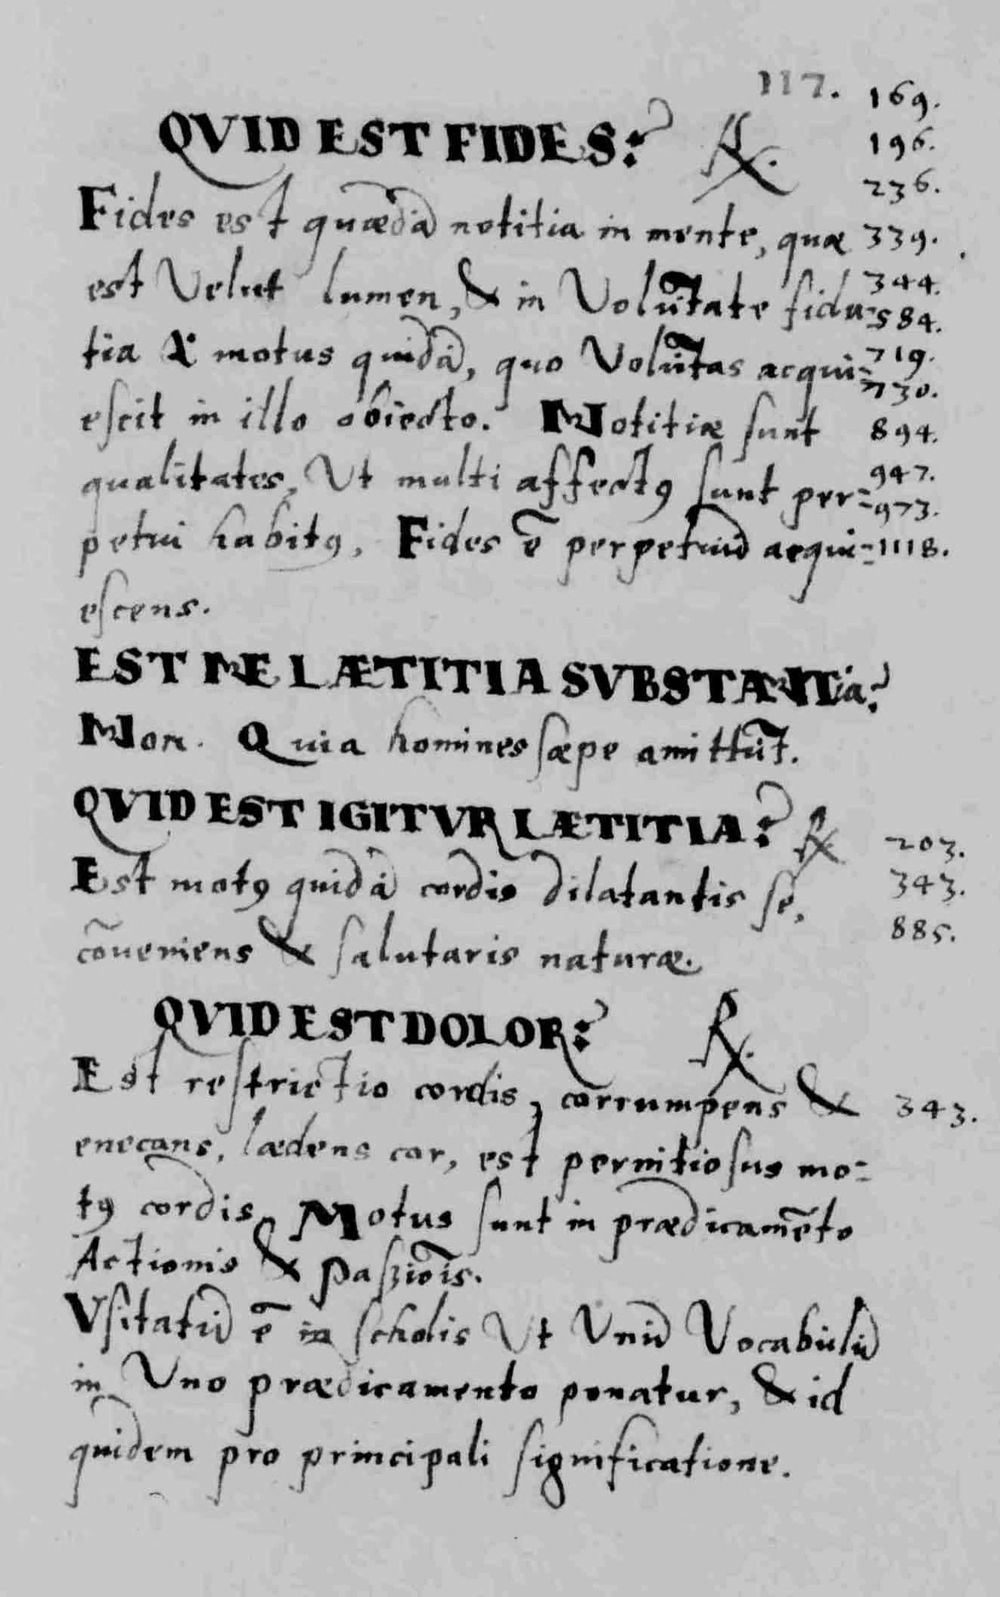 117. 169.
QVID EST FIDES? ℞. 196.
236.
Fides est quædā notitia in mente, quæ 339.
344.
est Velut lumen, & in Volūtate fidu= 584.
719.
tia & motus quidā, quo Volūtas acqui= 730.
escit in illo obiecto. Notitiæ sunt 894.
947.
qualitates, Ut multi affectꝰ sunt per= 973.
petui habitꝰ. Fides ē perpetuū acqui= 1118.
escens.
EST NE LÆTITIA SVBSTANTia?
Non. Quia homines sæpe amittūt.
QVID EST IGITVR LÆTITIA? ℞ 203.
Est motꝰ quidā cordis dilatantis se, 343.
cōueniens & salutaris naturæ. 885.
QVID EST DOLOR? ℞.
Est restrictio cordis, corrumpens & 343.
enecans, lædens cor, est pernitiosus mo=
tꝰ cordis. Motus sunt in prædicamēto
Actionis & Passiōis.
Vsitatū ē in scholis Ut Unū Vocabulū
in Uno prædicamento ponatur, & id
quidem pro principali significatione.